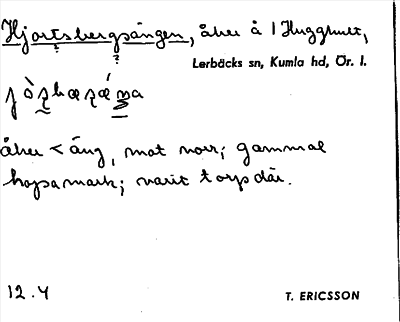 Hjortsbergsängen, åker å 1 Hugghult,
Lerbäcks sn, Kumla hd, Ör. l.
åker < äng, mot norr; gammal
hopamark; varit torp där.
12.4
T. ERICSSON